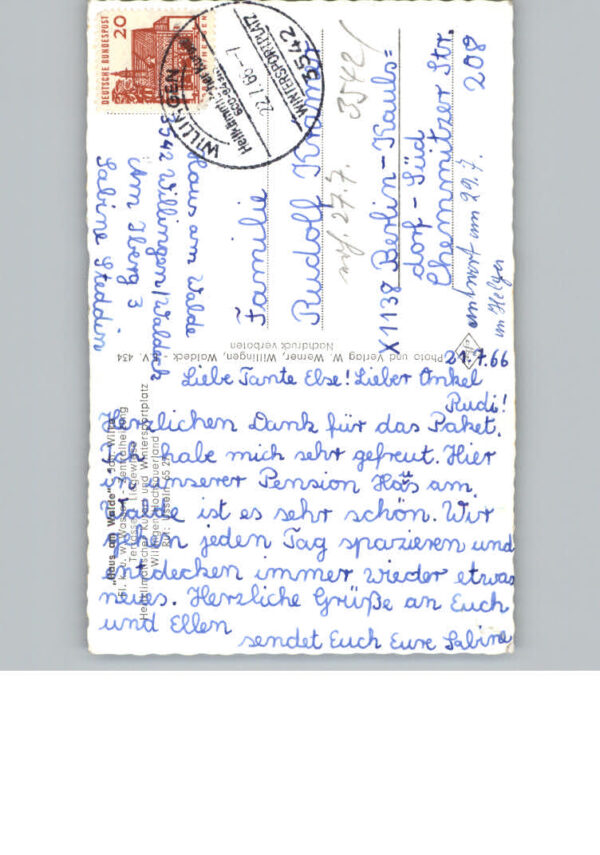 21.7.66
Liebe Tante Else! Lieber Onkel
Rudi!
Herzlichen Dank für das Paket.
Ich habe mich sehr gefreut. Hier
in unserer Pension Haus am
Walde ist es sehr schön. Wir
gehen jeden Tag spazieren und
entdecken immer wieder etwas
neues. Herzliche Grüße an Euch
und Ellen
sendet Euch Eure Sabine
"Haus am Walde"
Terrasse - Liegewiese
Heilklimatischer Kurort und Wintersportplatz
Willingen Hochsauerland
Photo und Verlag W. Werner, Willingen, Waldeck - K.V. 434
Nachdruck verboten
DEUTSCHE BUNDESPOST
20
3542
WILLINGEN
22.7.66-7
WINTERSPORTPLATZ
Haus am Walde
3542 Willingen/Waldeck
Am Iberg 3
Sabine Steddin
Familie
Rudolf Kramer
X1138 Berlin-Kauls=
dorf-Süd
Chemnitzer Str.
208
27.7.
3542/
antwort am 29.7.